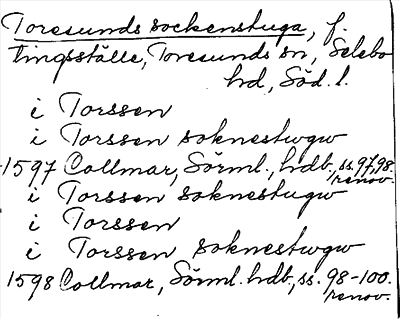 Toresunds sockenstuga, f.
tingsställe, Toresunds sn, Selebo
hd, Söd. l.
i Torssen
i Torssen soknestwgw
1597 Collmar, Sörml., hdb, ss. 97, 98.
renov.
i Torssen soknestugw
i Torssen
i Torssen soknestwgw
1598 Collmar, Sörml. hdb, ss. 98-100.
renov.